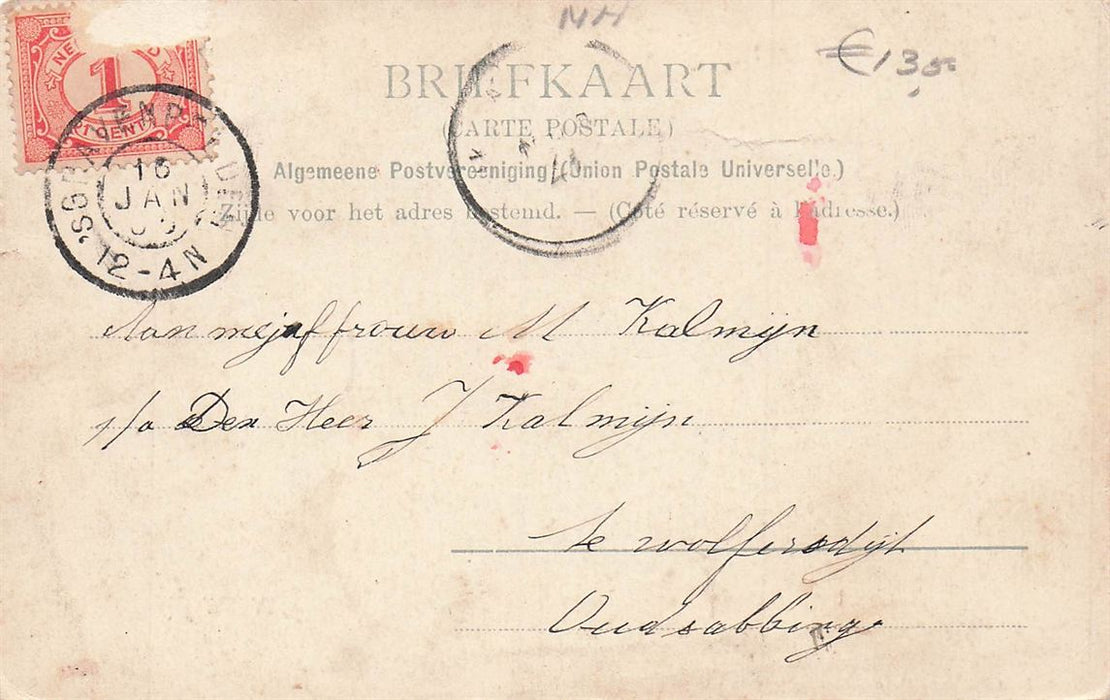 NH
€13,00
1
CENT
BRIEFKAART
(CARTE POSTALE)
Algemeene Postvereeniging (Union Postale Universelle.)
Zijde voor het adres bestemd. — (Coté réservé à l'adresse.)
16
JAN
12-4N
Aan mejuffrouw M Kalmijn
p/a Den Heer J Kalmijn
te wolfersdijk
Oudsabbinge